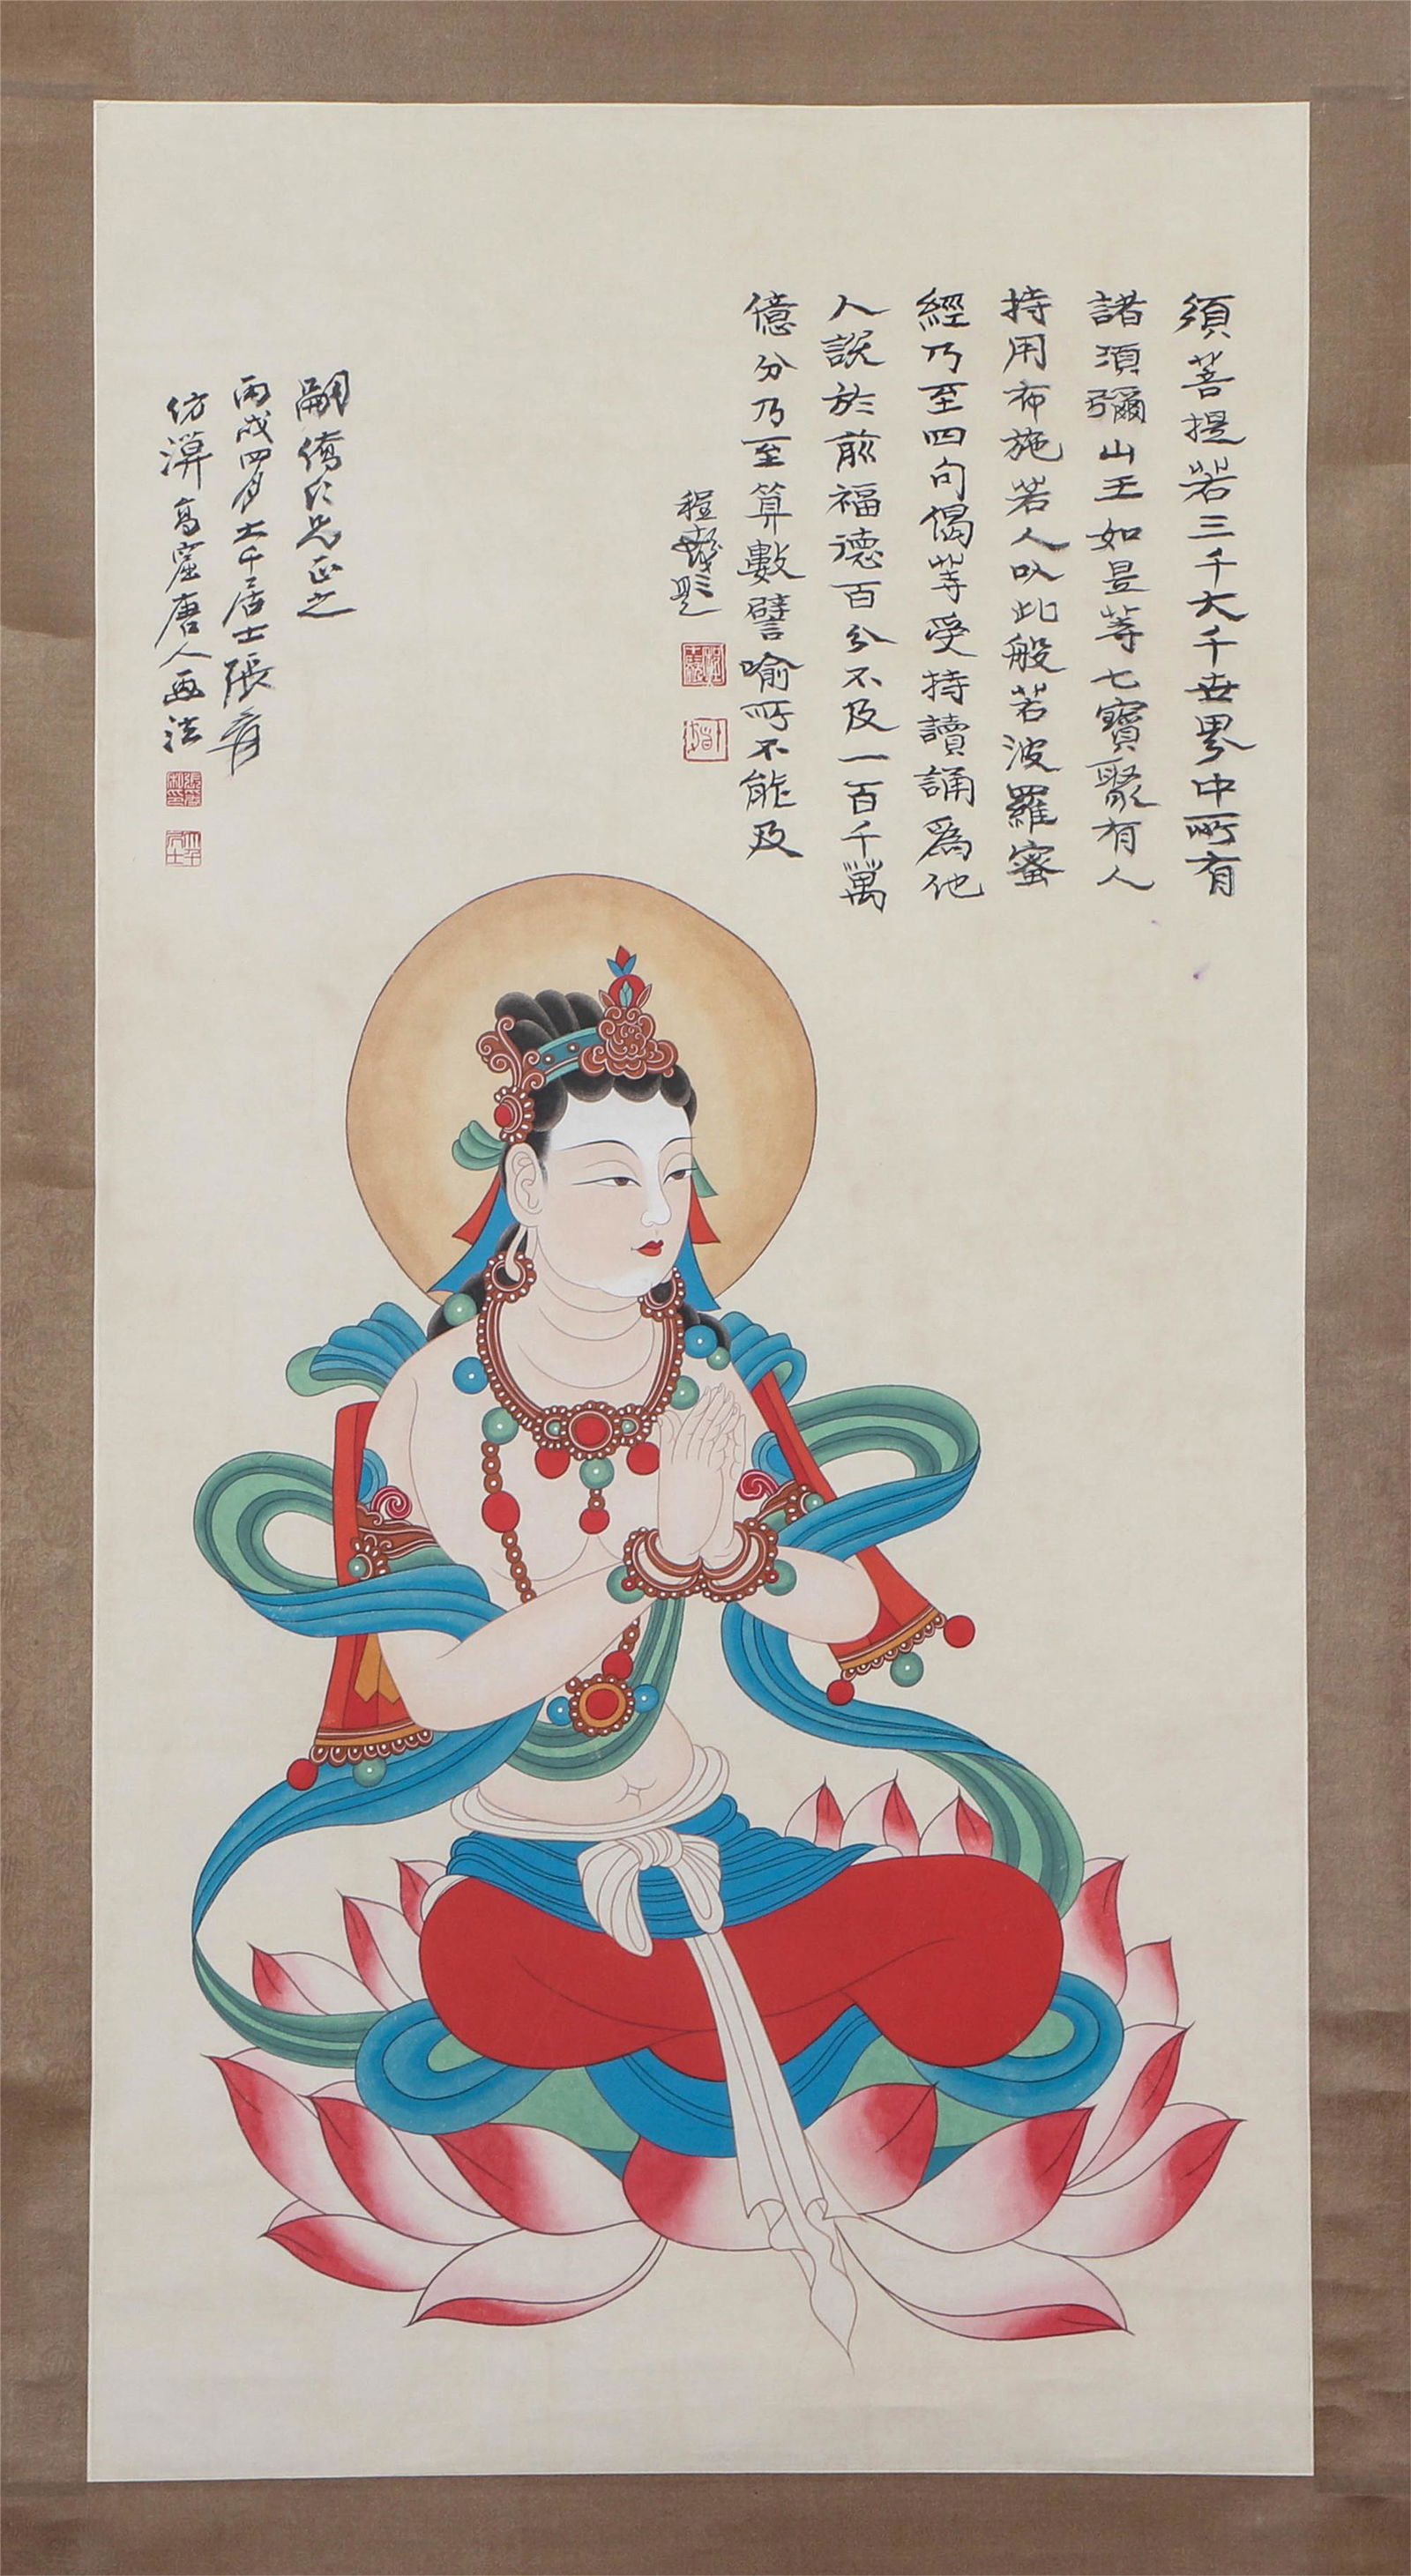 須菩提若三千大千世界中所有
諸須彌山王如是等七寶聚有人
持用布施若人以此般若波羅蜜
經乃至四句偈等受持讀誦為他
人說於前福德百分不及一百千萬
億分乃至算數譬喻所不能及
程潛題
嗣僑仁兄正之
丙戌四月大千居士張爰
仿漠高窟唐人畫法